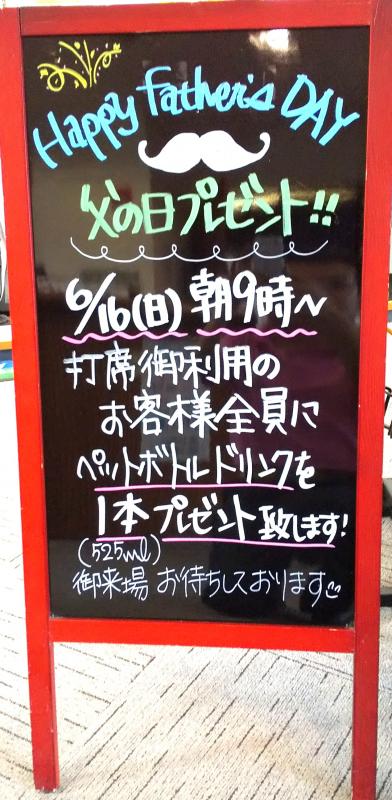 Happy Father's DAY
父の日プレゼント!!
6/16(日) 朝9時〜
打席御利用の
お客様全員に
ペットボトルドリンクを
1本プレゼント致します!
(525ml)
御来場 お待ちしております